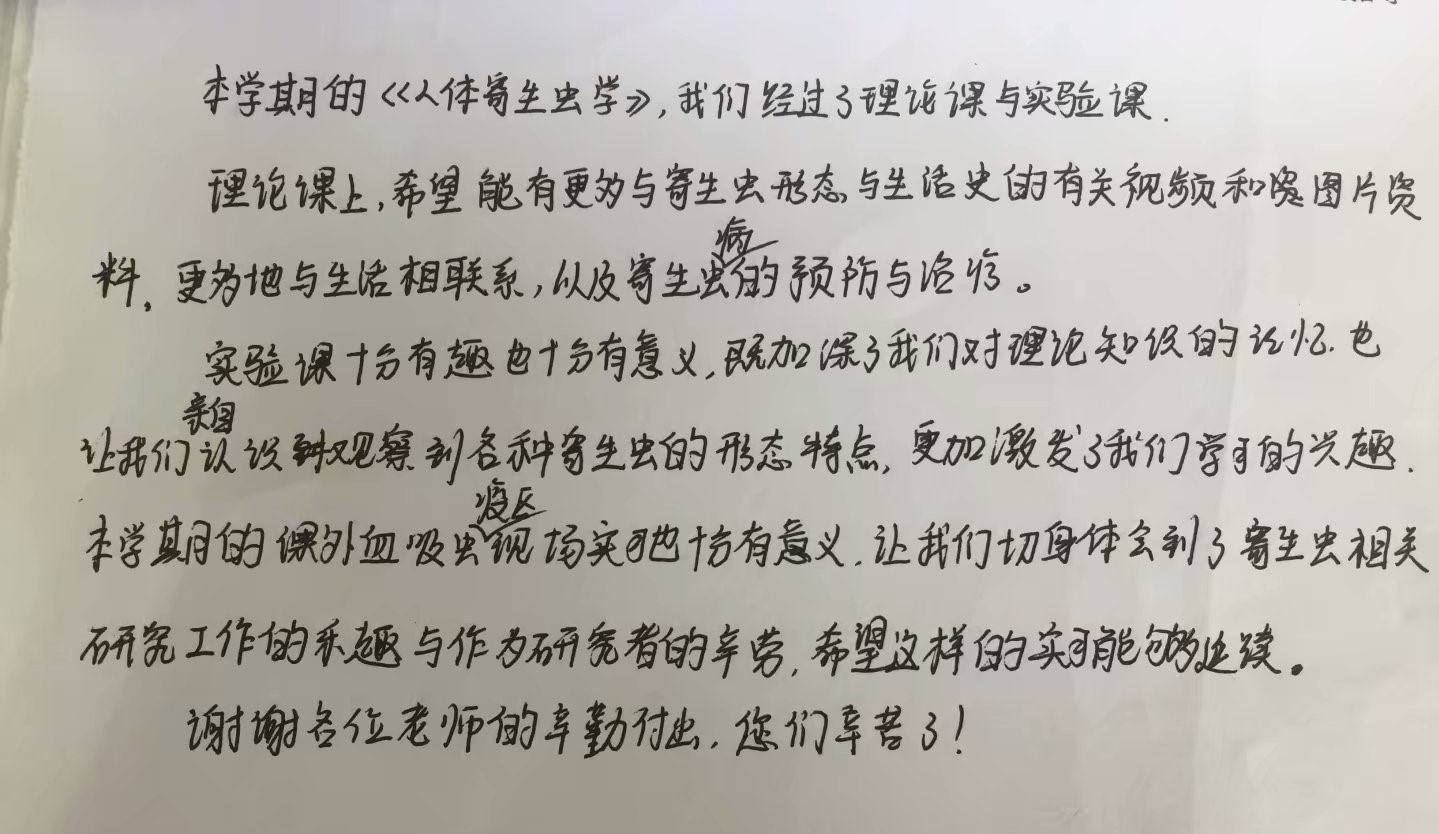 本学期的《人体寄生虫学》,我们经过了理论课与实验课.
理论课上,希望能有更多与寄生虫形态与生活史的有关视频和图片资
料,更多地与生活相联系,以及寄生虫病的预防与治疗。
实验课十分有趣也十分有意义,既加深了我们对理论知识的记忆.也
让我们亲自认识观察到各种寄生虫的形态特点,更加激发了我们学习的兴趣.
本学期的课外血吸虫疫区现场实习也十分有意义.让我们切身体会到了寄生虫相关
研究工作的乐趣与作为研究者的辛劳,希望这样的实习能够延续。
谢谢各位老师的辛勤付出.您们辛苦了!